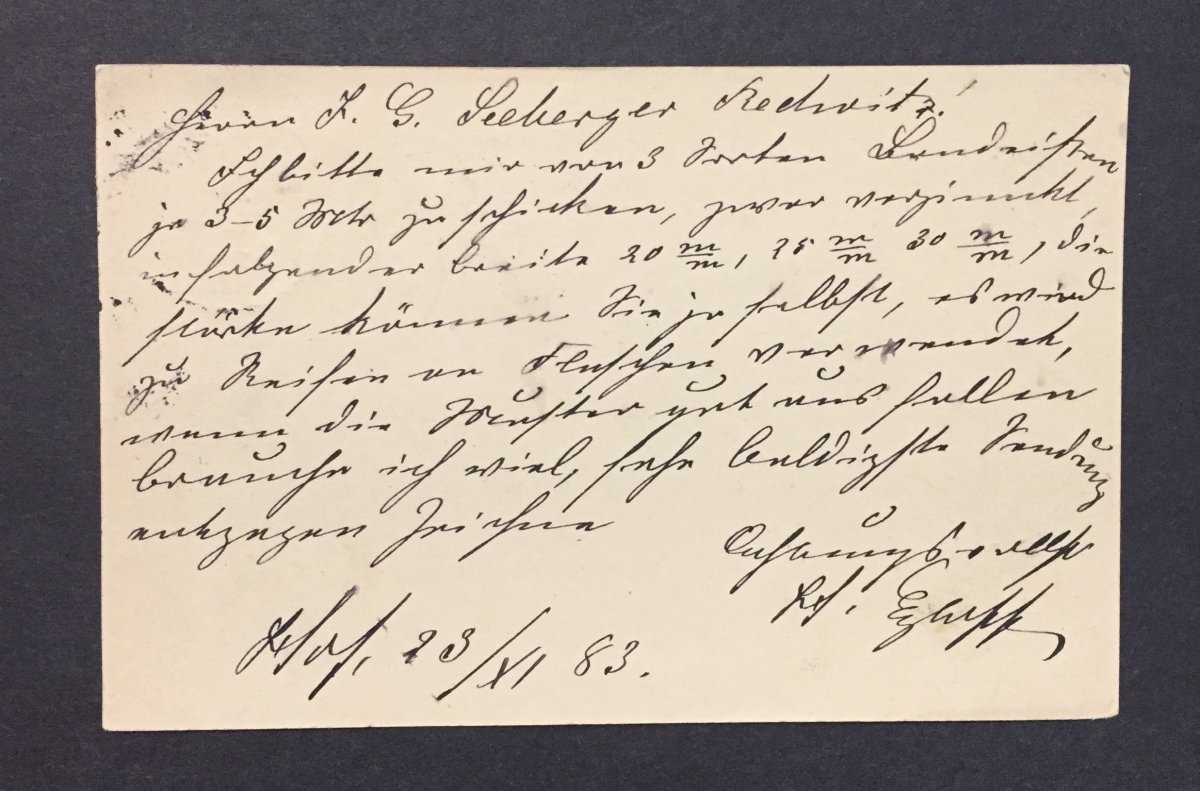 Herrn J. G. Seeberger Redwitz!
Ich bitte mir von 3 Sorten Bandeisen
je 3–5 Mtr zu schicken, zwar verzinnkt,
in folgender breite 20 m/m, 25 m/m 30 m/m, die
stärke können Sie ja selbst, es wird
zu Reifen an Flaschen verwendet,
wenn die Muster gut aus fallen
brauche ich viel, sehe baldigste Sendung
entgegen Zeichne
Achtungsvollst
Hof, 23/XI 83.